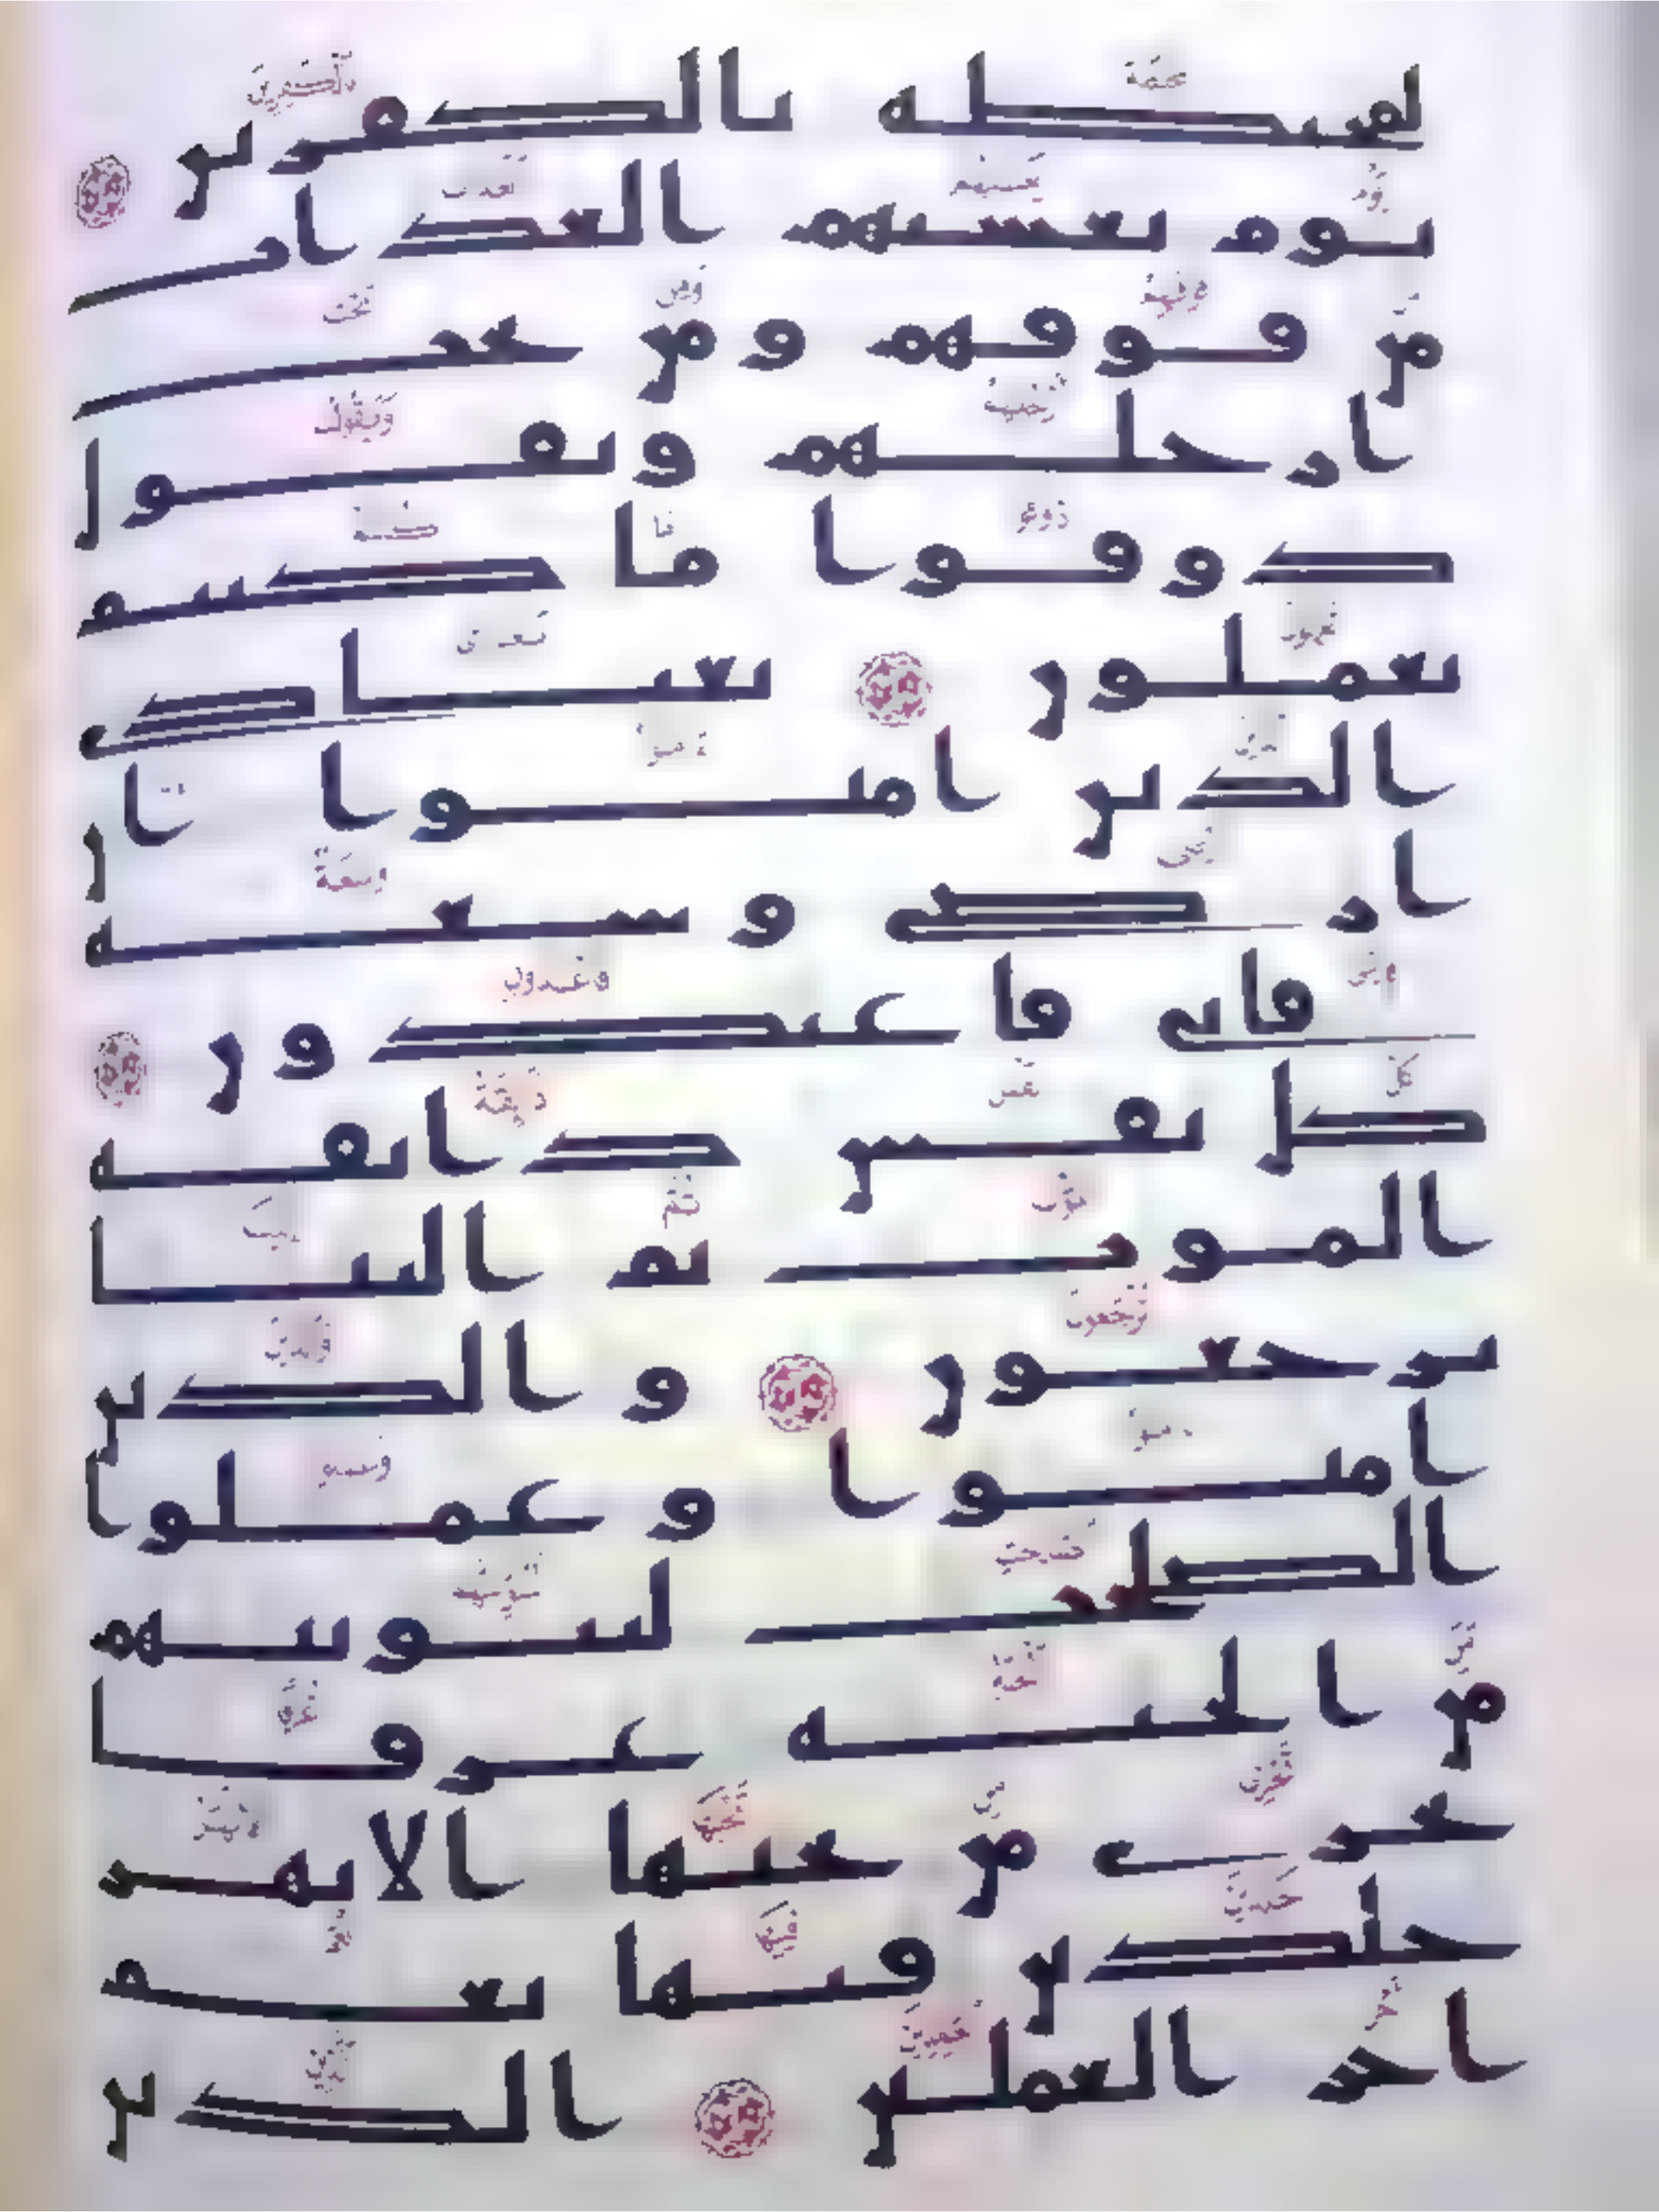 لمحيطة بالكفرين
يوم يغشيهم العذاب
من فوقهم ومن تحت
ارجلهم ويقول
ذوقوا ما كنتم
تعملون يعبادي
الذين امنوا ان
ارضي وسعة
فايي فاعبدون
كل نفس ذايقة
الموت ثم الينا
ترجعون والذين
امنوا وعملوا
الصلحت لنبوينهم
من الجنة غرفا
تجري من تحتها الانهر
خلدين فيها نعم
اجر العملين الذين